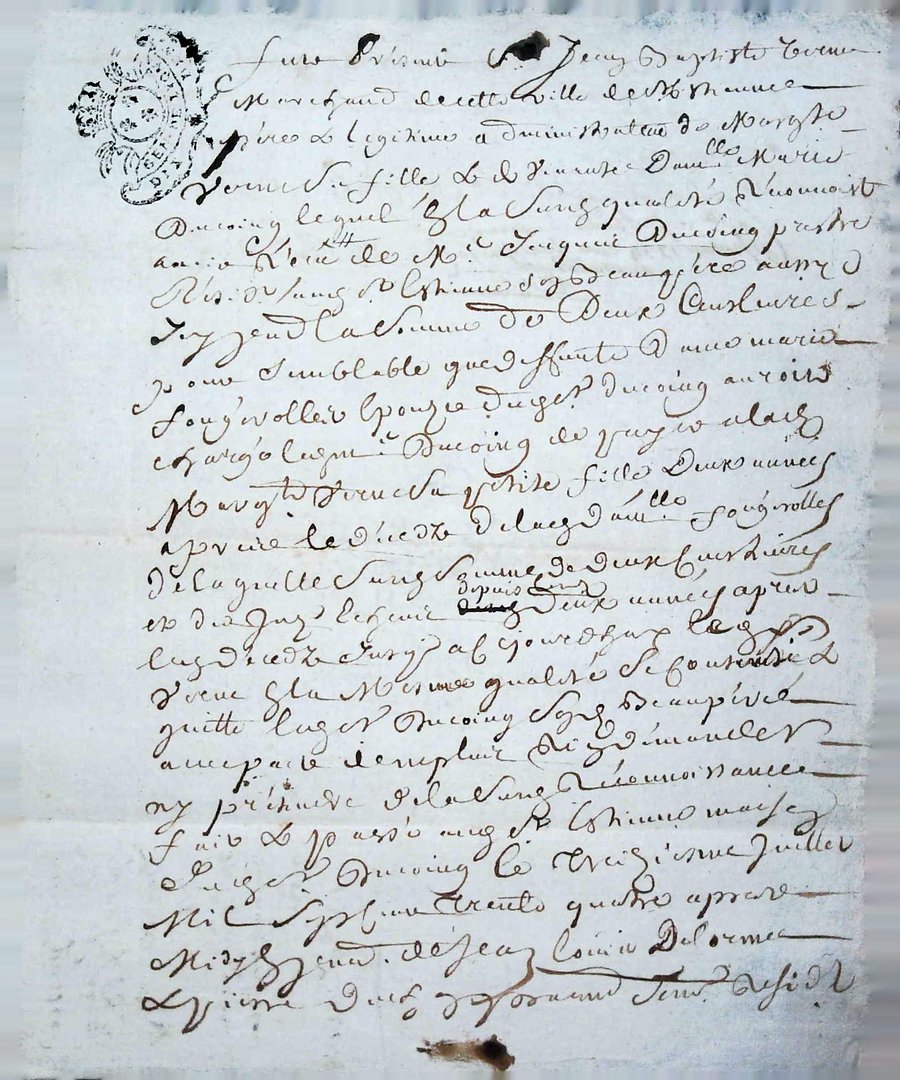 fure présent Sr Jean Baptiste Verne
Marchand de cette ville de St Estienne
père & legitime administrateur de Margte
Verne sa fille & de Damlle Marie
Ducoing lequel en la susd qualité reconnoist
avoir receu de Mre Jacques Ducoing prestre
résidt aud St Estienne son beaupère aussy
present la somme de Deux Cent livres
pour semblable que deffunte Dame marie
fougerolles épouze dud Sr ducoing auroit
chargé led Sr Ducoing de payer a lad
Margte Verne sa petite fille deux années
apres le décedz de lad damlle fougerolles
de laquelle susd somme de deux Cent livres
et des Intz depuis lesd
deux années apres
led décedz jusqu a cejourdhuy led Sr
Verne en la mesme qualité se contente &
quitte led Sr Ducoing son Beaupère
avec pacte de n'en plus rien demander
ny prétendre de la susd reconnoissance
fait & passé aud St Estienne maison
dud Sr Ducoing le treizieme Juillet
Mil sept cent trente quatre apres
Midy en presence de Jean Louis Delorme
& pierre residt